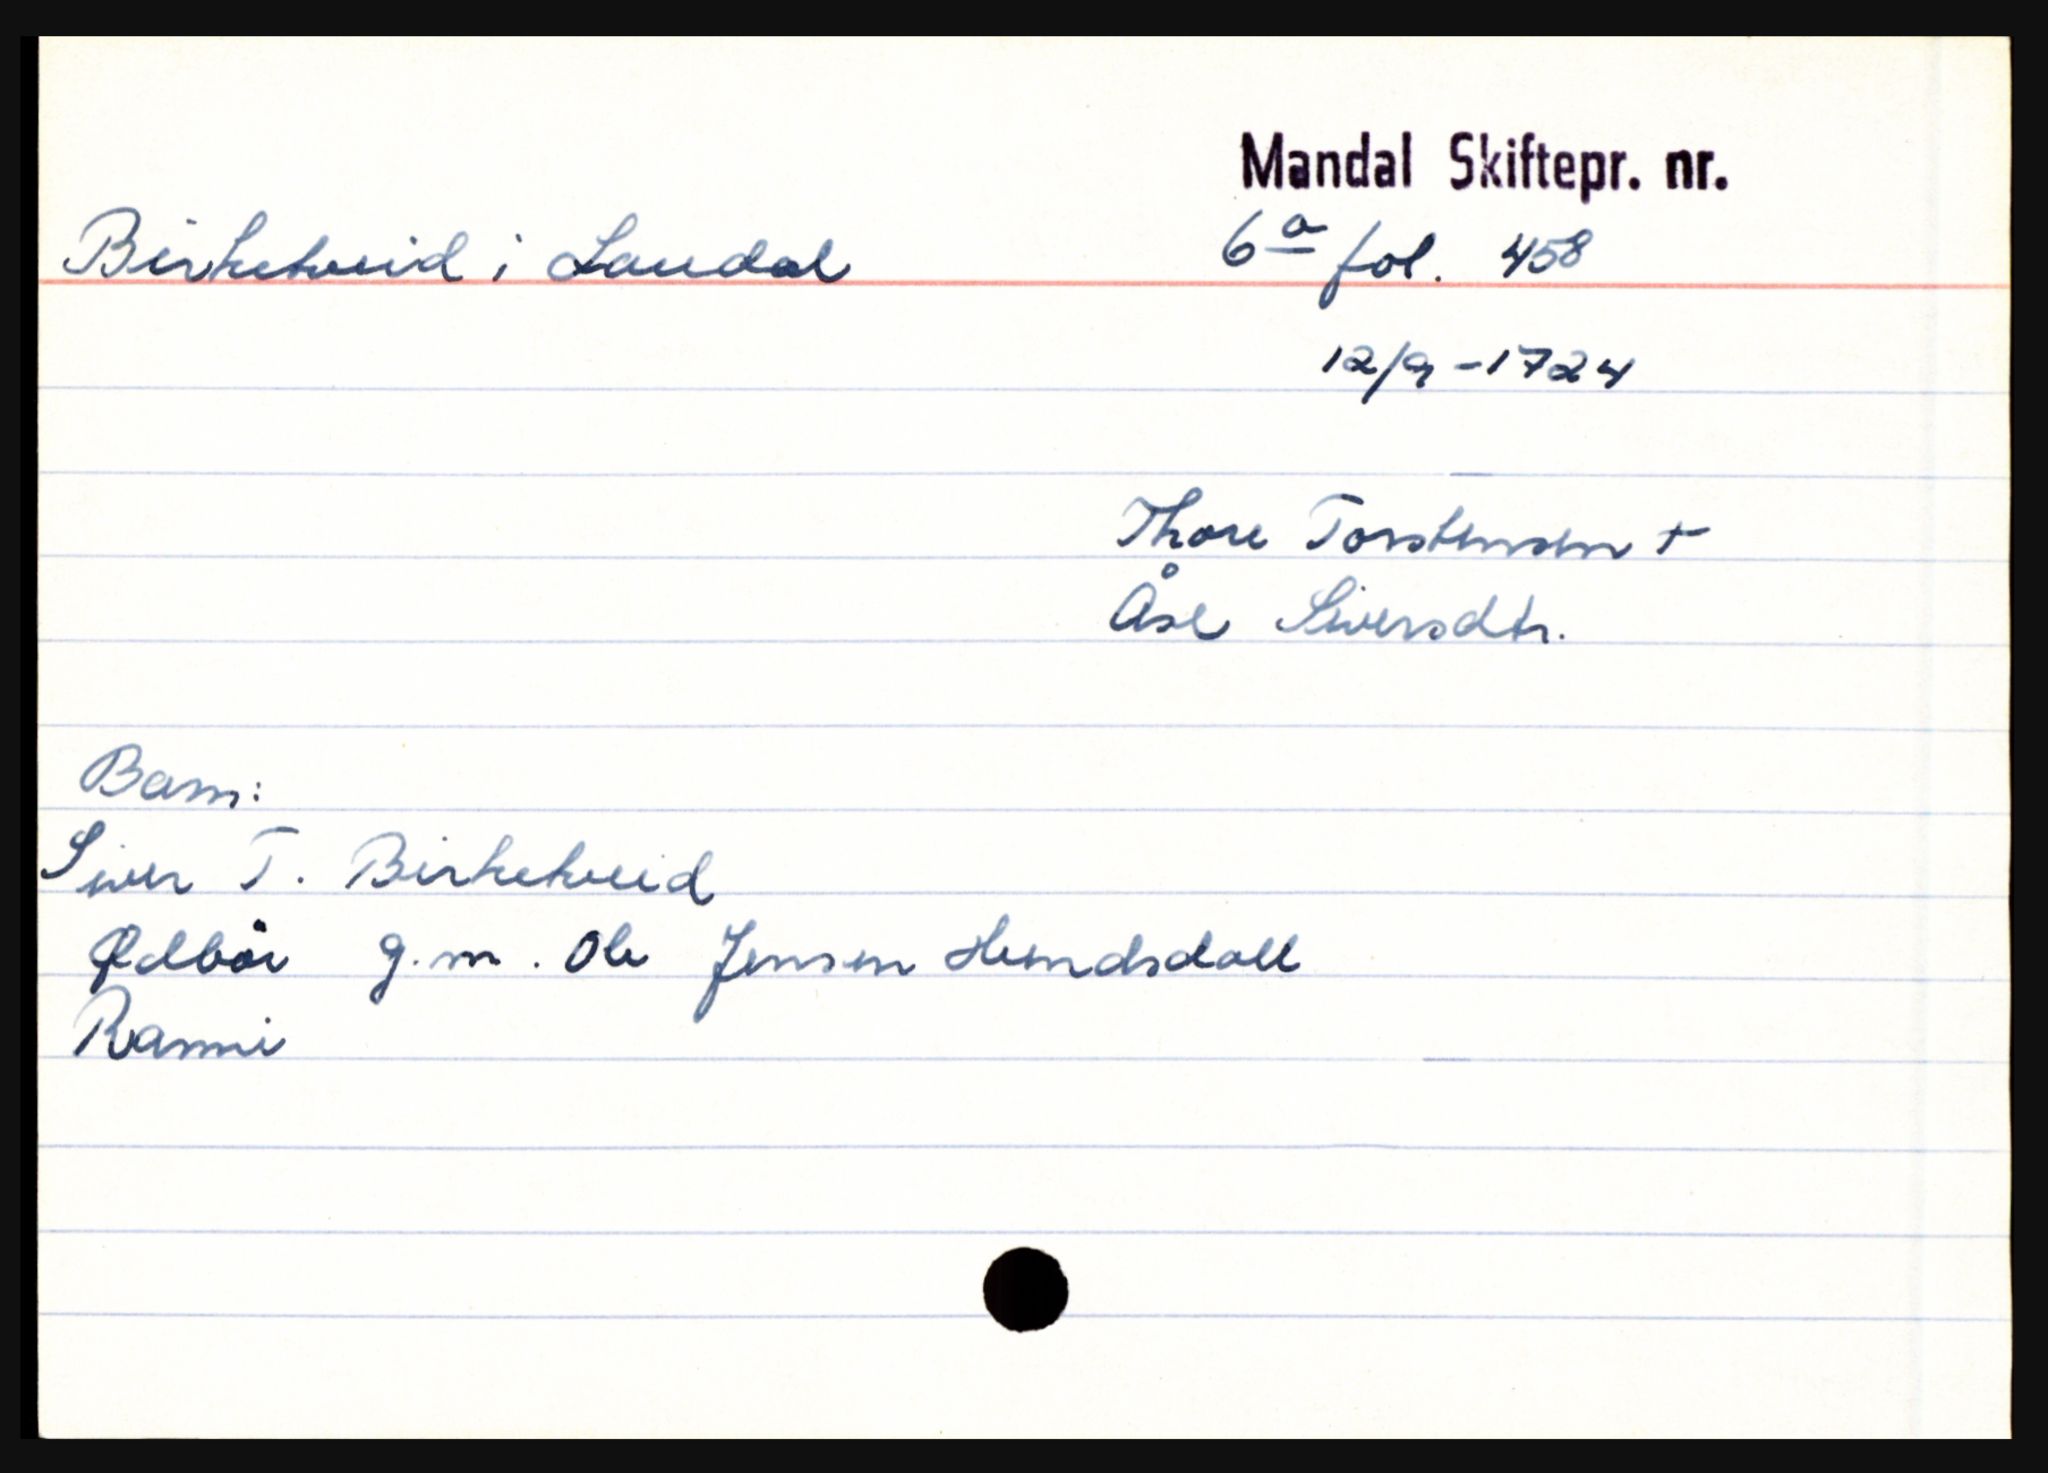 Mandal Skiftepr. nr.
Birketveid i Laudal 6a fol. 458
12/9 - 1724
Thore Torstensen +
Åse Siversdtr.
Barn:
Siver T. Birketveid
Ødbør g.m. Ole Jensen Hemdsdall
Ranni